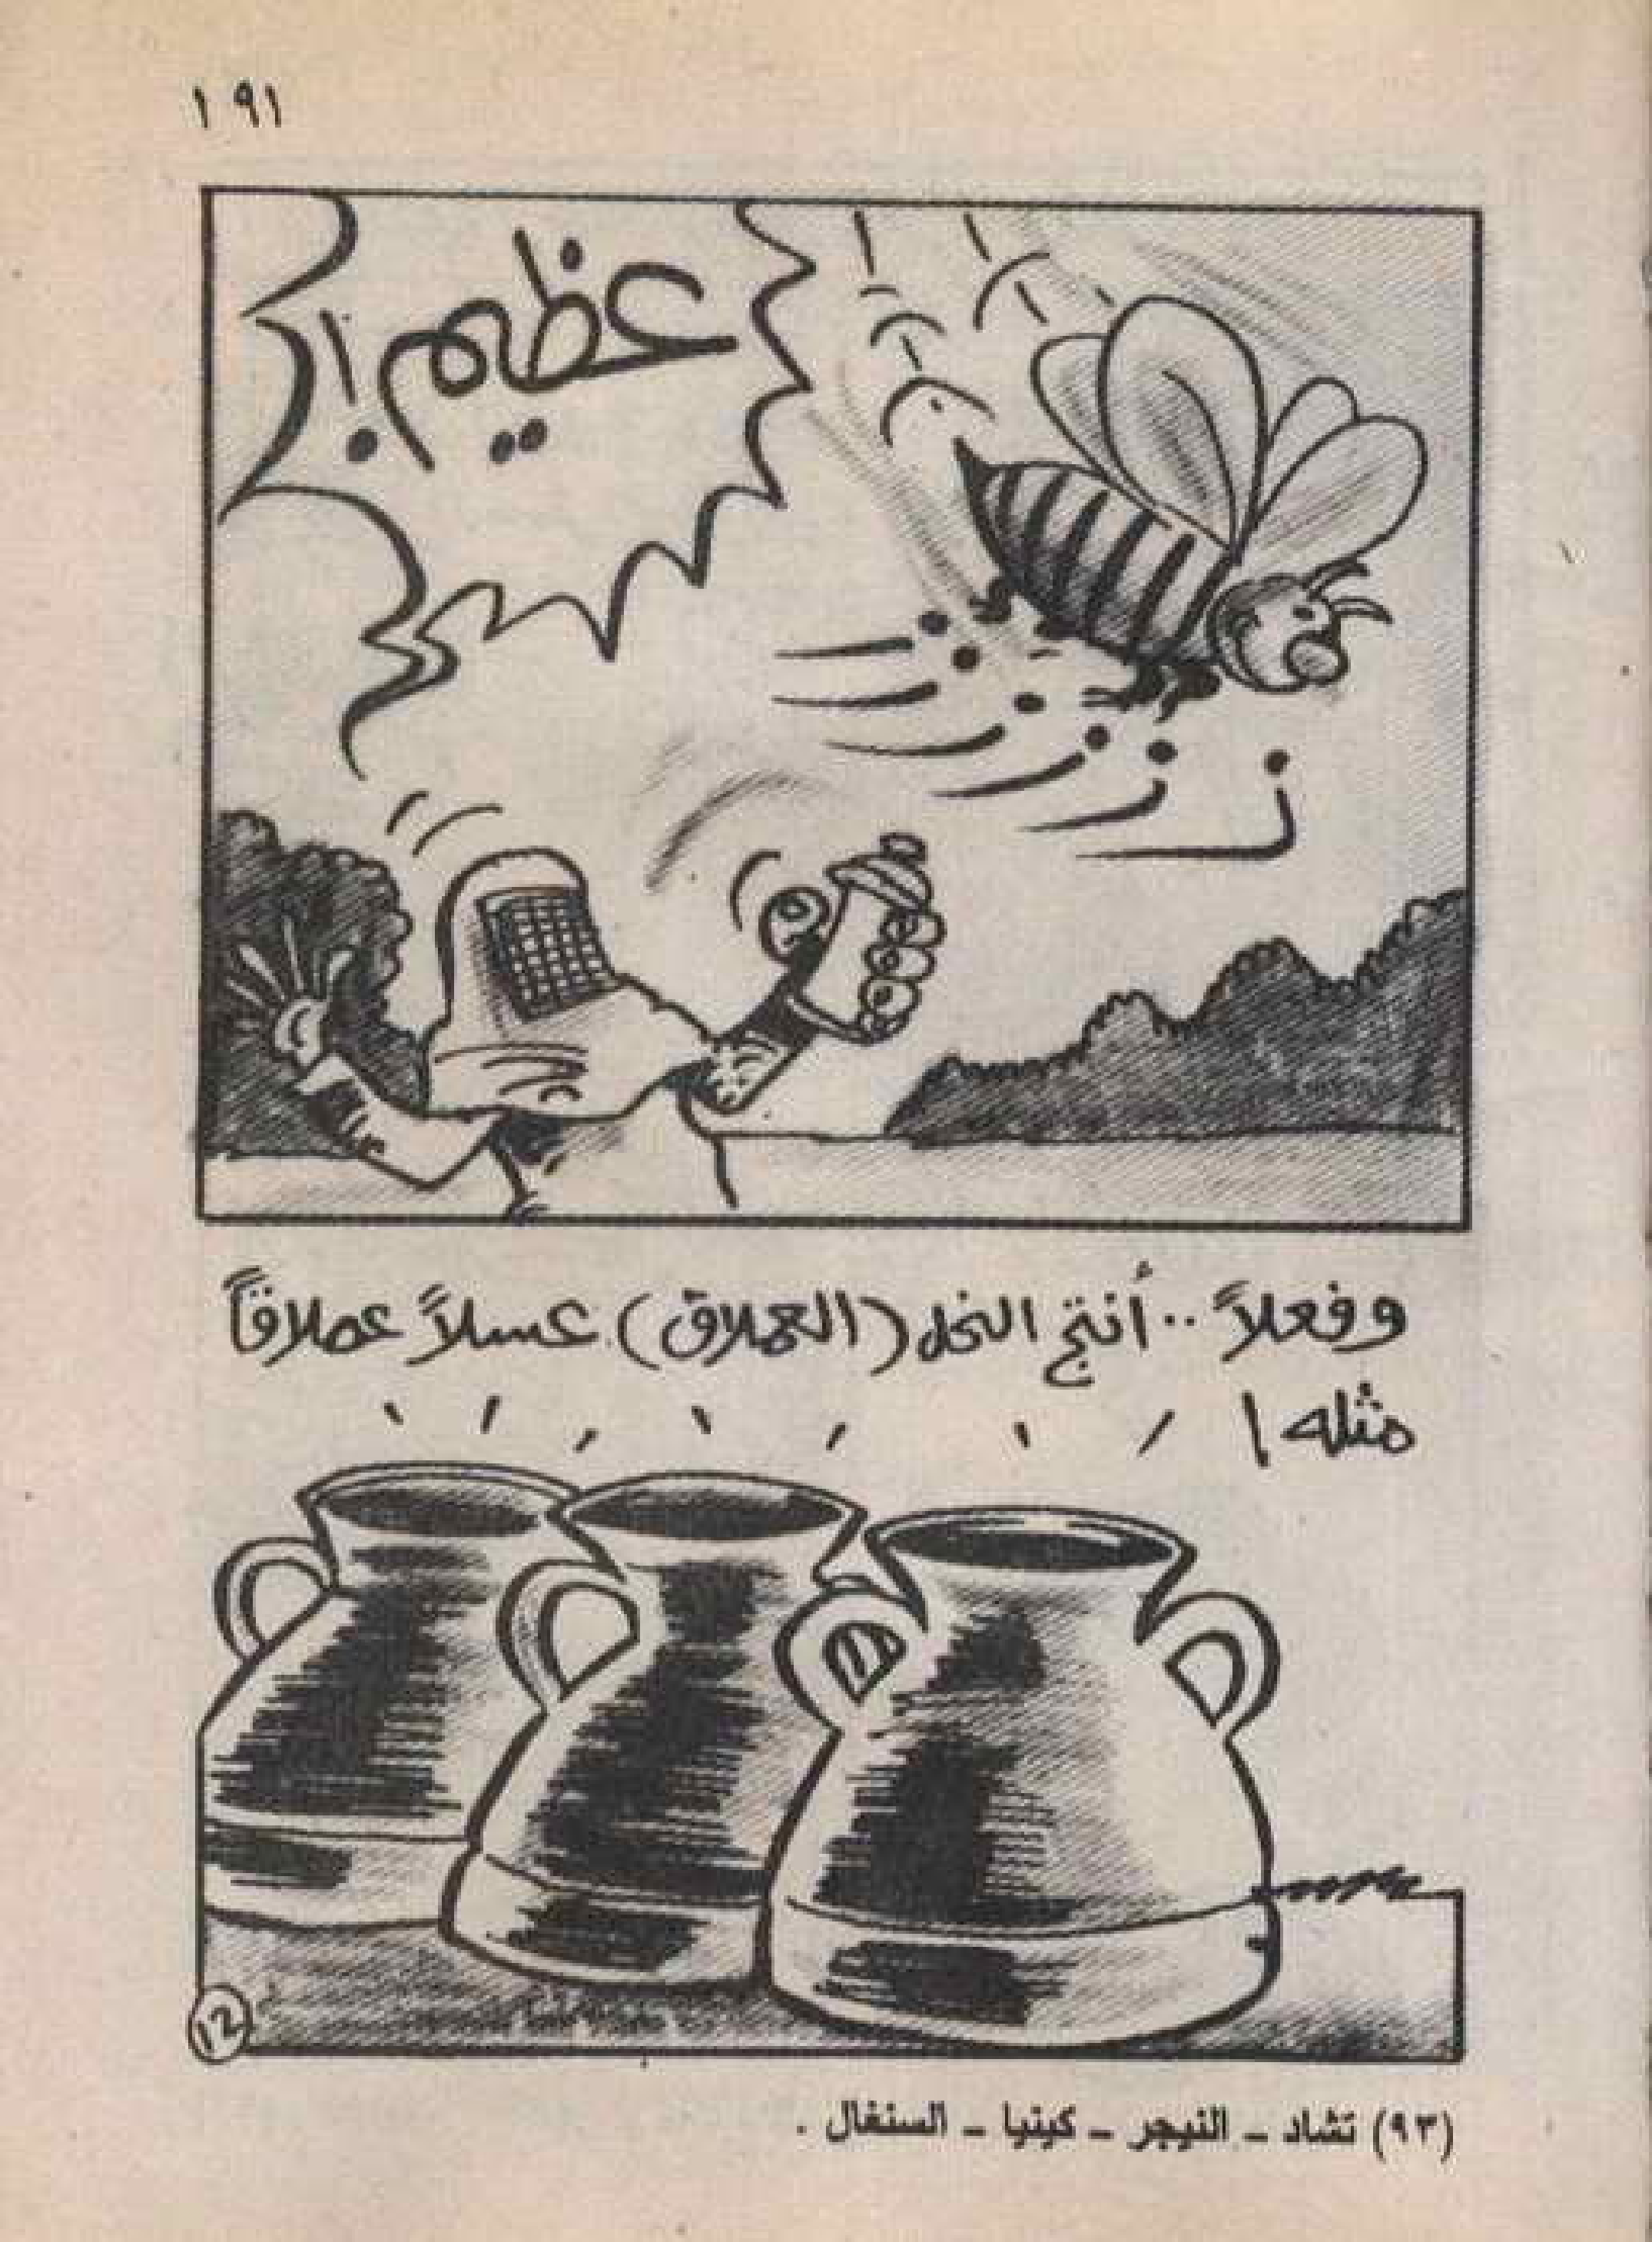 ١٩١
عظيم!
ززززززز
وفعلاً.. أنتج النحل (العملاق) عسلاً عملاقاً
مثله!
١٢
(٩٣) تشاد - النيجر - كينيا - السنغال .